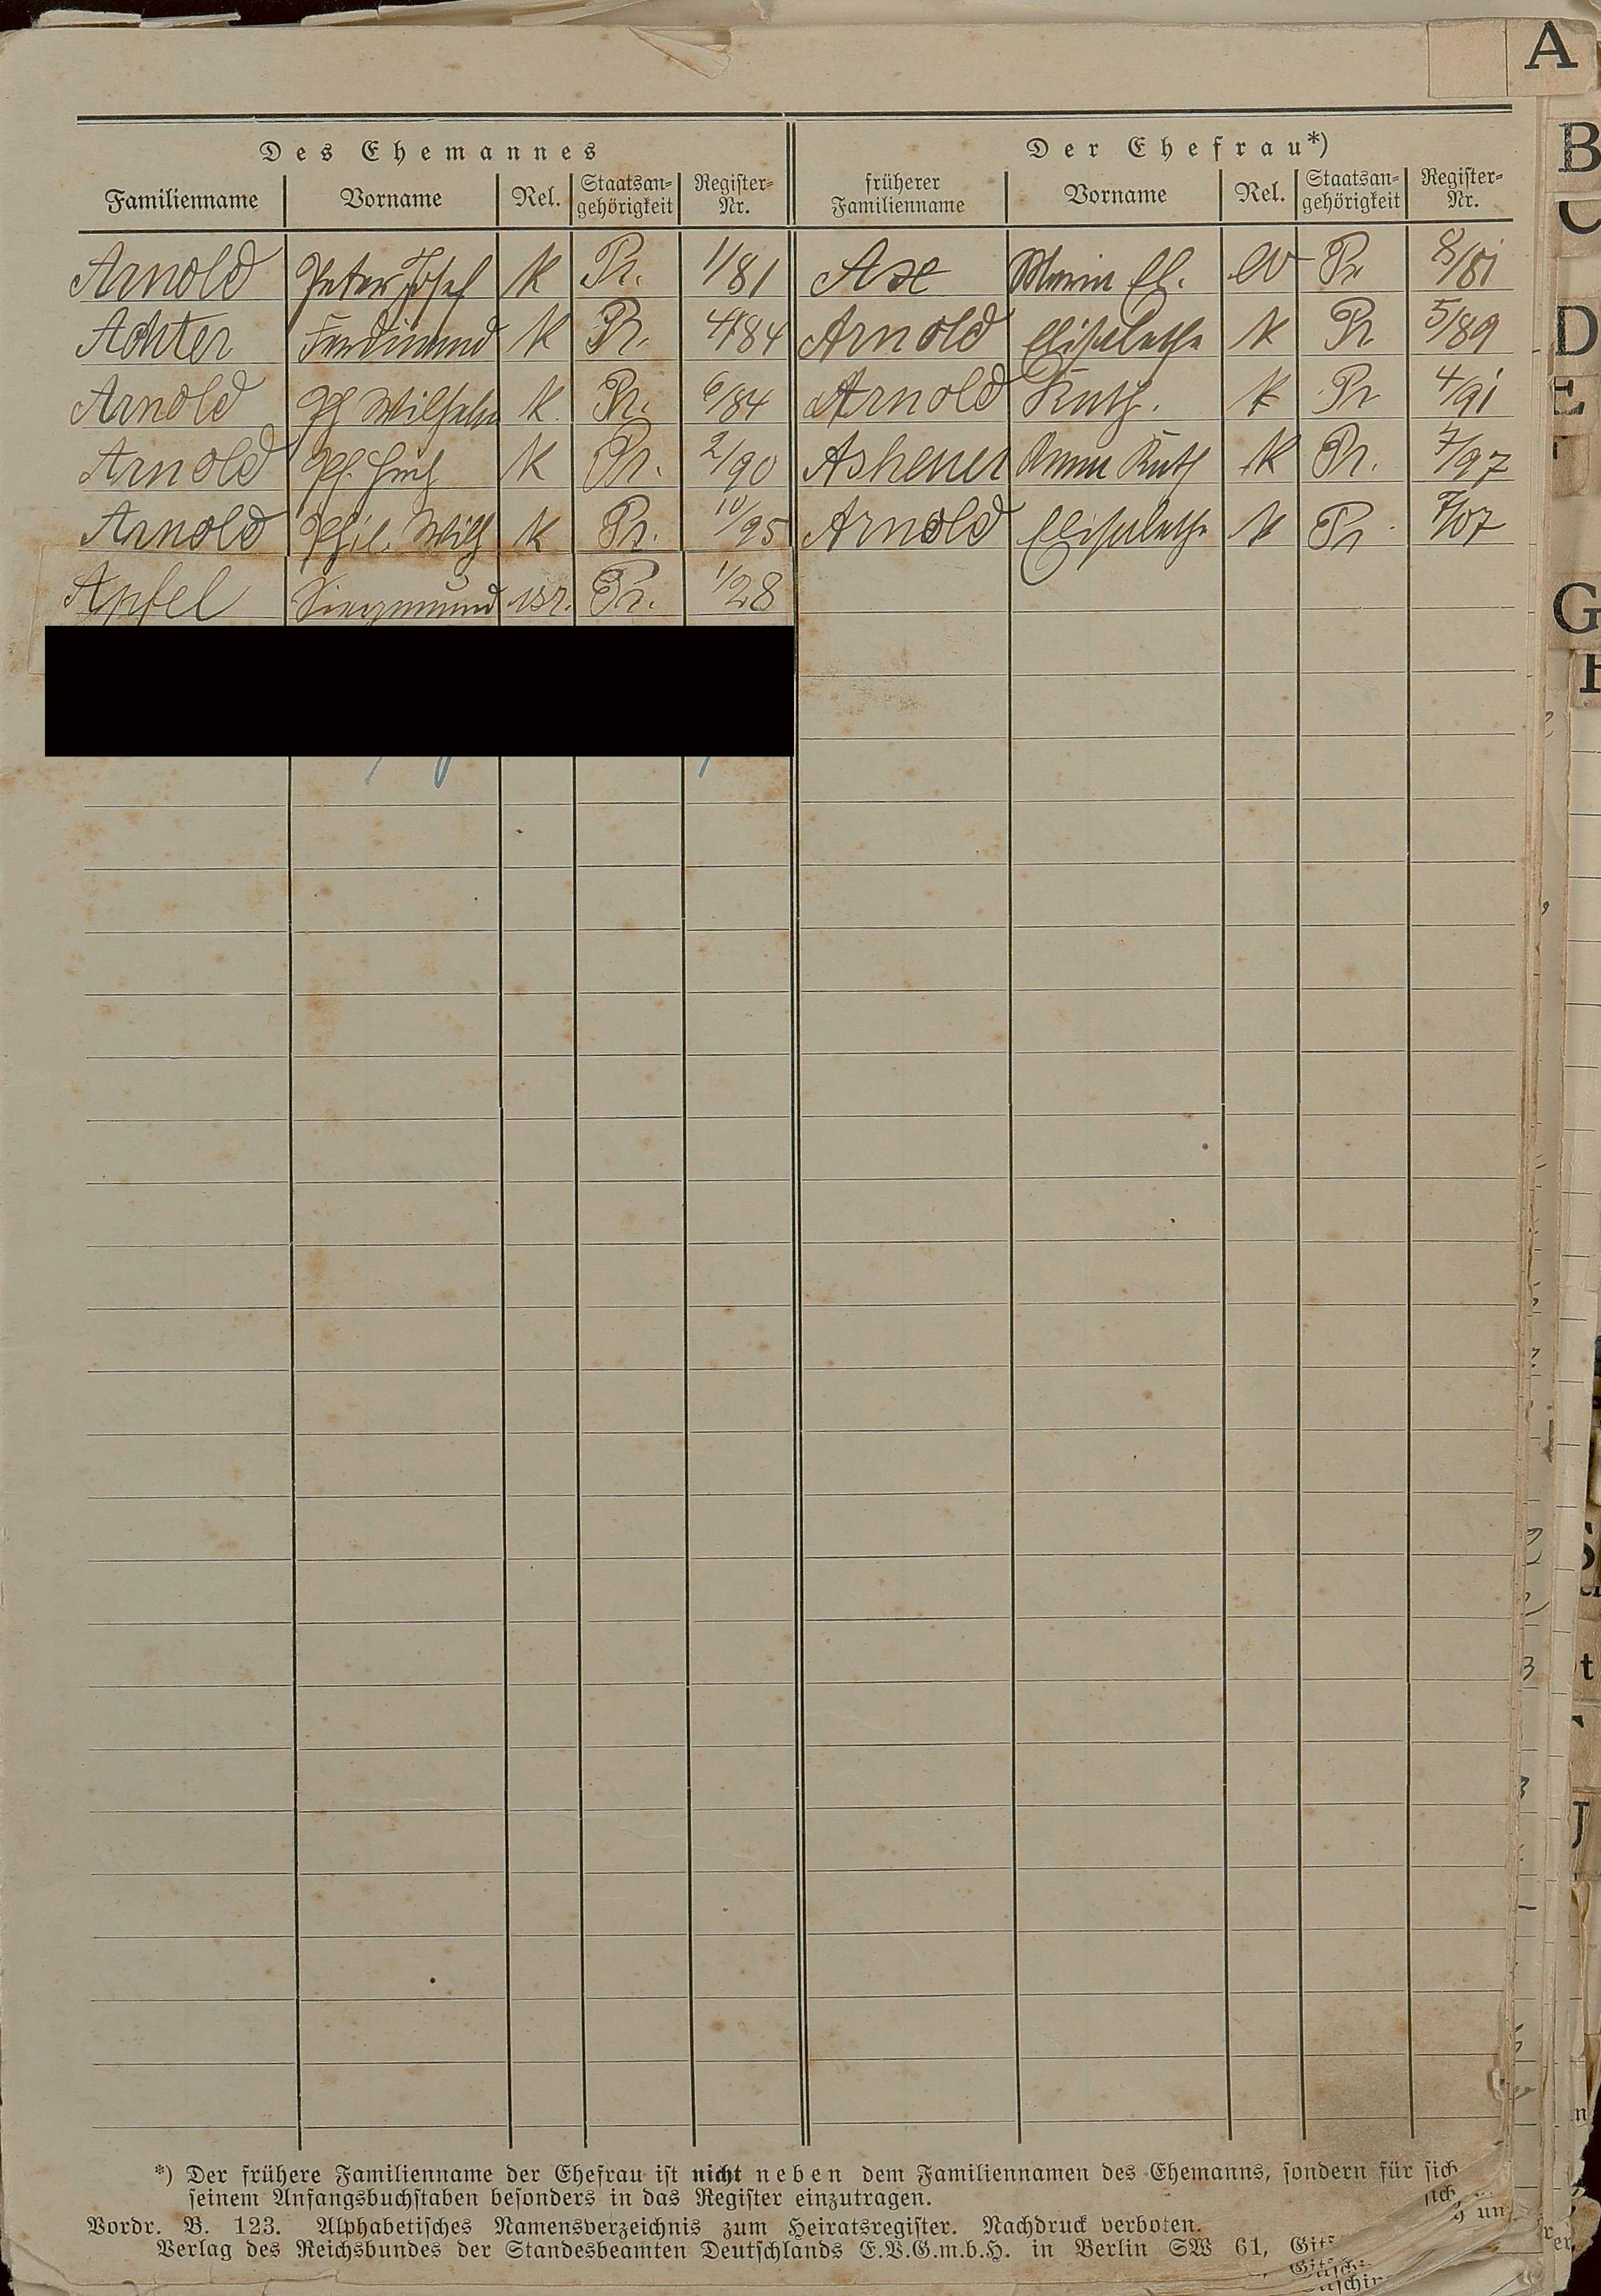 A
Des Ehemannes Der Ehefrau*)
Familienname Vorname Rel. Staatsan-gehörigkeit Register-Nr. früherer Familienname Vorname Rel. Staatsan-gehörigkeit Register-Nr.
Arnold Peter Josef K Pr. 1/81 Axe Maria El. ev Pr 8/81
Achter Ferdinand K Pr. 4/84 Arnold Elisabetha K Pr. 5/89
Arnold Ph Wilhelm K. Pr. 6/84 Arnold Kath. K Pr 4/91
Arnold K Pr. 2/90 Anna Kath K Pr. 7/97
Arnold Phil. Wilh K Pr. 10/95 Arnold Elisabetha K Pr. /07
Apfel Siegmund isr. Pr. 1/28
B
C
D
E
G
*) Der frühere Familienname der Ehefrau ist nicht neben dem Familiennamen des Ehemanns, sondern für sich
seinem Anfangsbuchstaben besonders in das Register einzutragen.
Vordr. B. 123. Alphabetisches Namensverzeichnis zum Heiratsregister. Nachdruck verboten.
Verlag des Reichsbundes der Standesbeamten Deutschlands E.V.G.m.b.H. in Berlin SW 61,